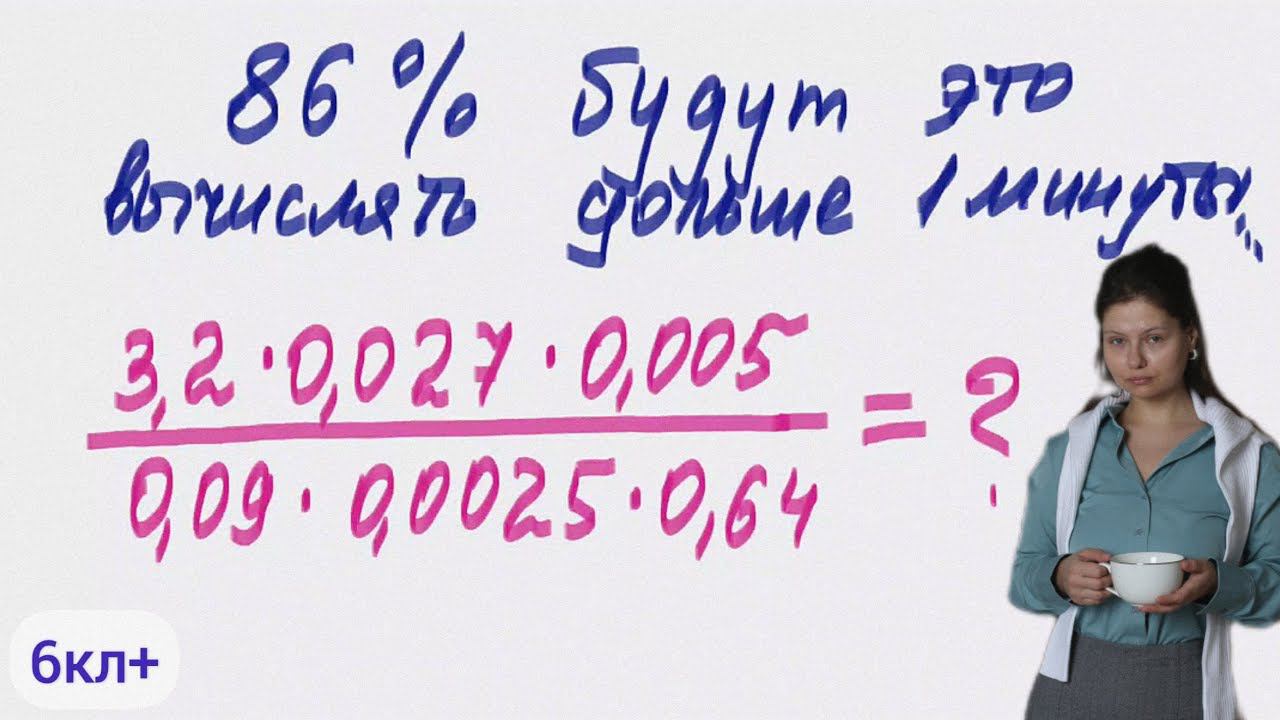 86% будут это
вычислять дольше 1 минуты...
3,2·0,027·0,005
0,09·0,00025·0,64
= ?
6кл+